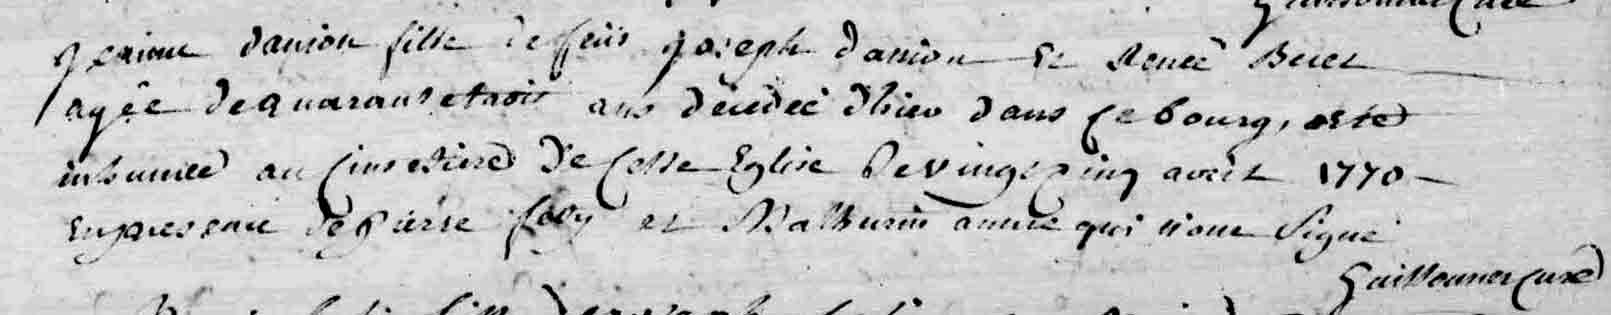 danion fille de feüs joseph danion et Renée Beret
agée de quarante trois ans décedée d'hier dans ce bourg, a été
inhumée au cimetiere de cette Eglise le vingt cinq avril 1770
En presence de pierre et Mathurin qui n'ont signé
curé